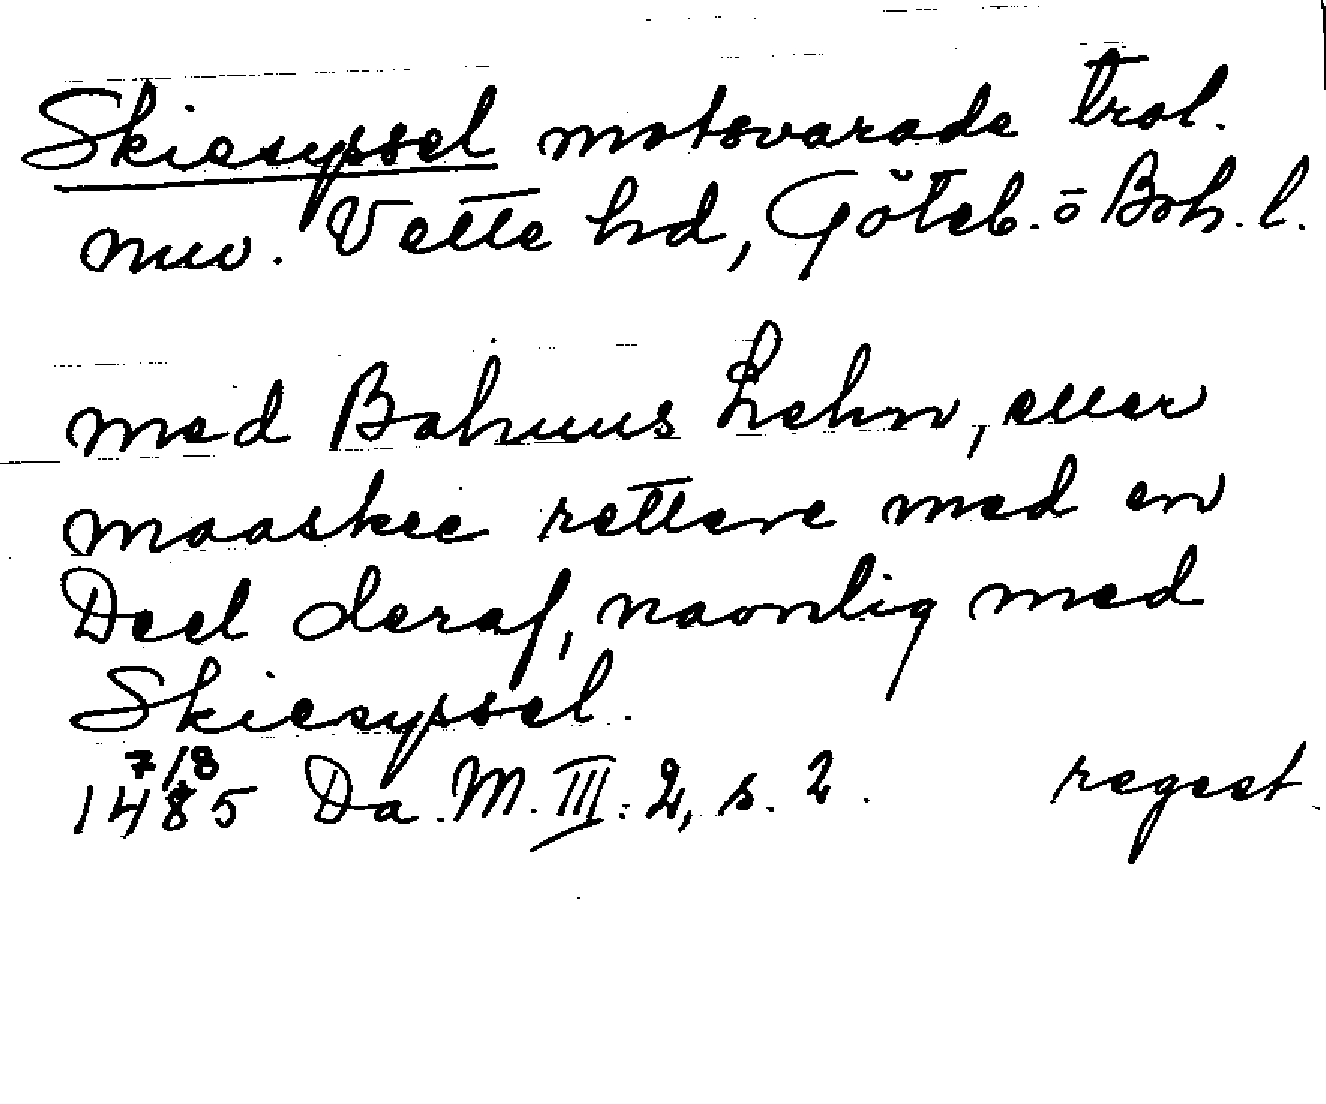 Skiesyssel motsvarade trol.
nuv. Vette hd, Göteb. ō Boh. l.
med Bahuus Lehn, eller
maaskee rettere med en
Deel deraf, naonlig med
Skiesyssel.
7/8
1485 Da. M. III: 2, s. 2. regest